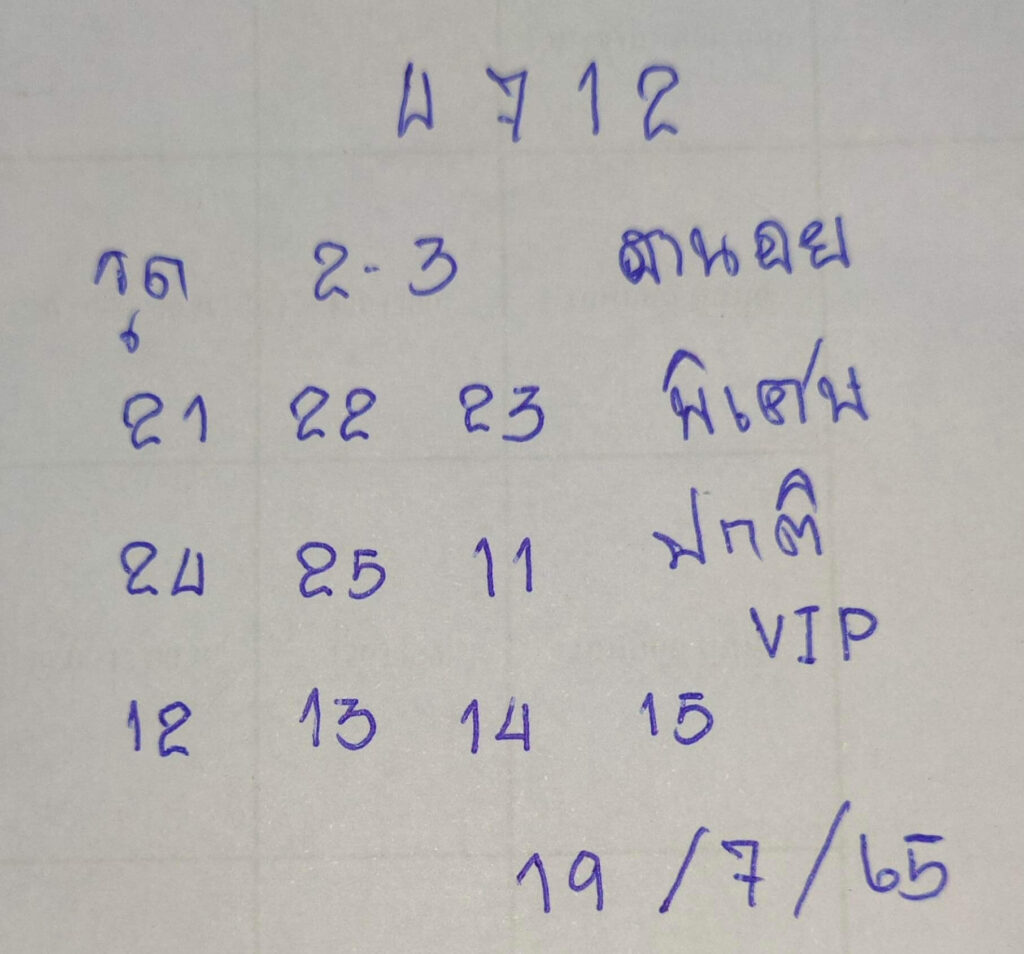 4 7 1 2
รูด 2-3 ฮานอย
21 22 23 พิเศษ
24 25 11 ปกติ
VIP
12 13 14 15
19/7/65